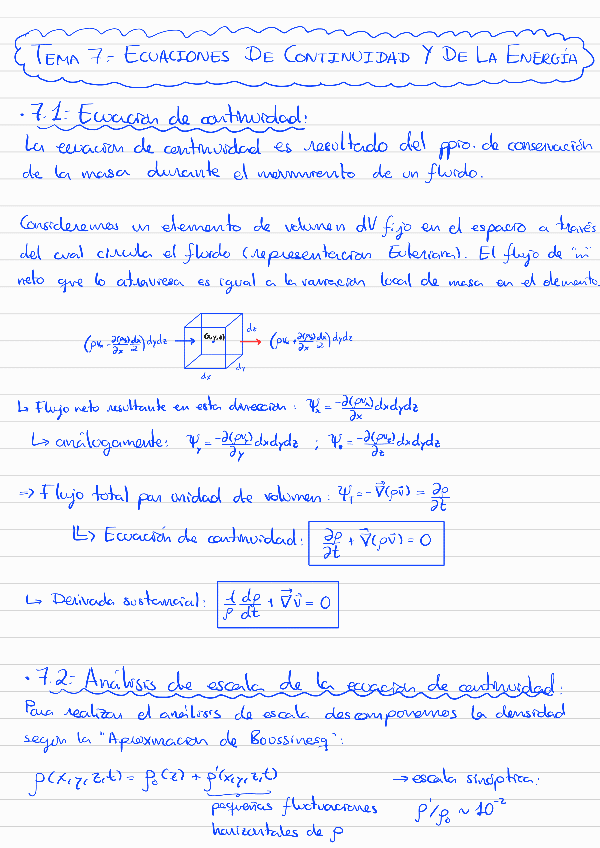 TEMA 7 = ECUACIONES DE CONTINUIDAD Y DE LA ENERGÍA
· 7.1: Ecuación de continuidad:
La ecuación de continuidad es resultado del ppio. de conservación
de la masa durante el movimiento de un fluido.
Consideremos un elemento de volumen dV fijo en el espacio a través
del cual circula el fluido (representación Euleriana). El flujo de "m"
neto que lo atraviesa es igual a la variación local de masa en el elemento.
(ρvₓ - ∂(ρvₓ)/∂x dx/2) dydz → (x,y,z) → (ρvₓ + ∂(ρvₓ)/∂x dx/2) dydz
dz
dy
dx
↳ Flujo neto resultante en esta dirección: Ψₓ = -∂(ρvₓ)/∂x dxdydz
↳ análogamente: Ψ_y = -∂(ρv_y)/∂y dxdydz ; Ψ_z = -∂(ρv_z)/∂z dxdydz
⇒ Flujo total por unidad de volumen: Ψ₁ = -∇⃗(ρv⃗) = ∂ρ/∂t
↳ Ecuación de continuidad: ∂ρ/∂t + ∇⃗(ρv⃗) = 0
↳ Derivada sustancial: 1/ρ dρ/dt + ∇⃗v⃗ = 0
· 7.2: Análisis de escala de la ecuación de continuidad:
Para realizar el análisis de escala descomponemos la densidad
según la "Aproximación de Boussinesq":
ρ(x,y,z,t) = ρ₀(z) + ρ'(x,y,z,t) → escala sinóptica:
pequeñas fluctuaciones ρ'/ρ₀ ~ 10⁻²
horizontales de ρ